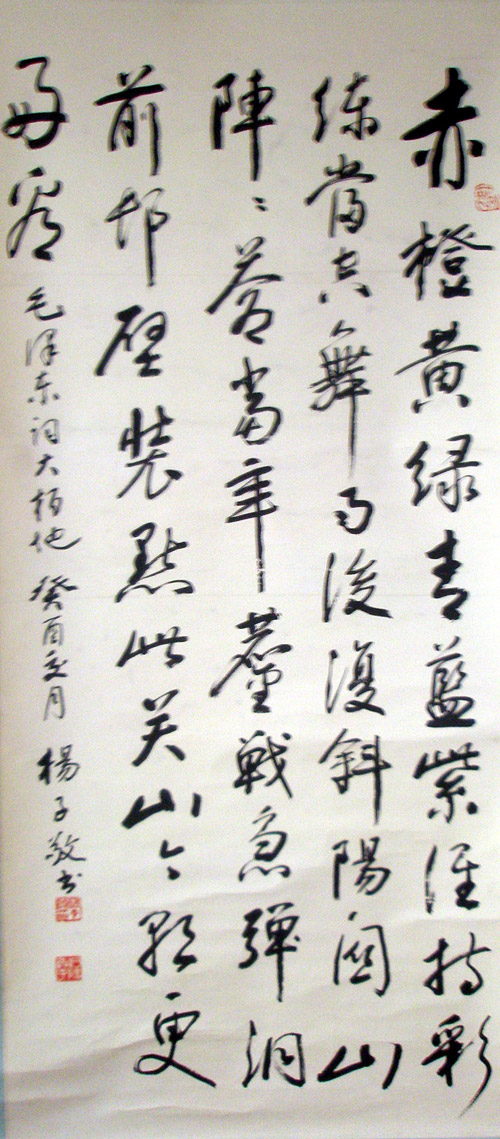 赤橙黄绿青藍紫谁持彩
练當空舞雨後復斜陽関山
陣〻蒼當年鏖戦急弹洞
前邨壁装點此关山今朝更
好看
毛泽东词大柏地 癸酉夏月 楊子敬书